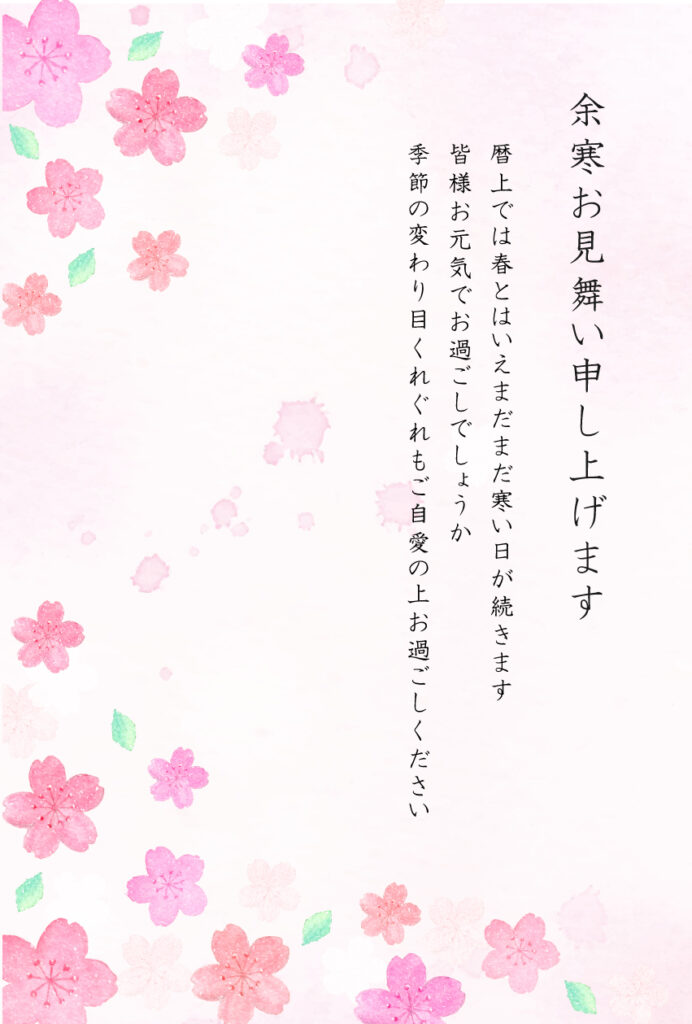 余寒お見舞い申し上げます
暦上では春とはいえまだまだ寒い日が続きます
皆様お元気でお過ごしでしょうか
季節の変わり目くれぐれもご自愛の上お過ごしください